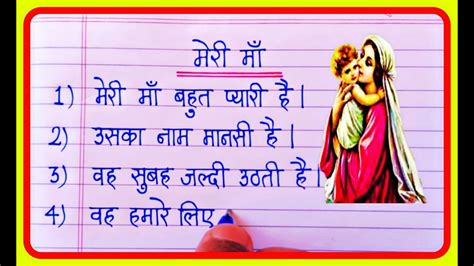 मेरी माँ
1) मेरी माँ बहुत प्यारी है।
2) उसका नाम मानसी है।
3) वह सुबह जल्दी उठती है।
4) वह हमारे लिए